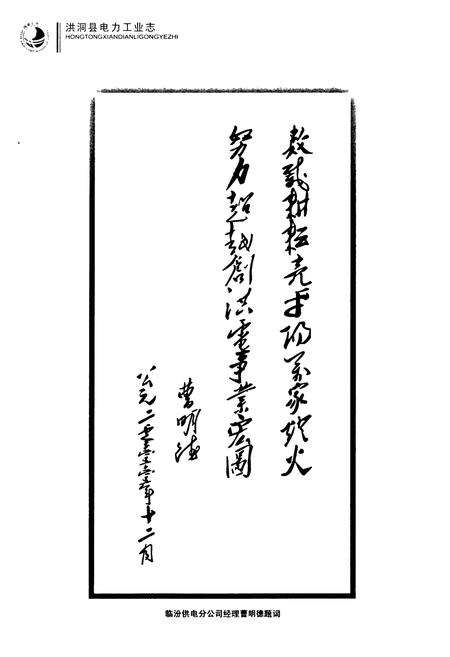 洪洞县电力工业志
HONGTONGXIANDIANLIGONGYEZHI
数載耕耘亮平阳万家灯火
努力超越創洪電事業宏圖
曹明德
公元二零年十二月
临汾供电分公司经理曹明德题词